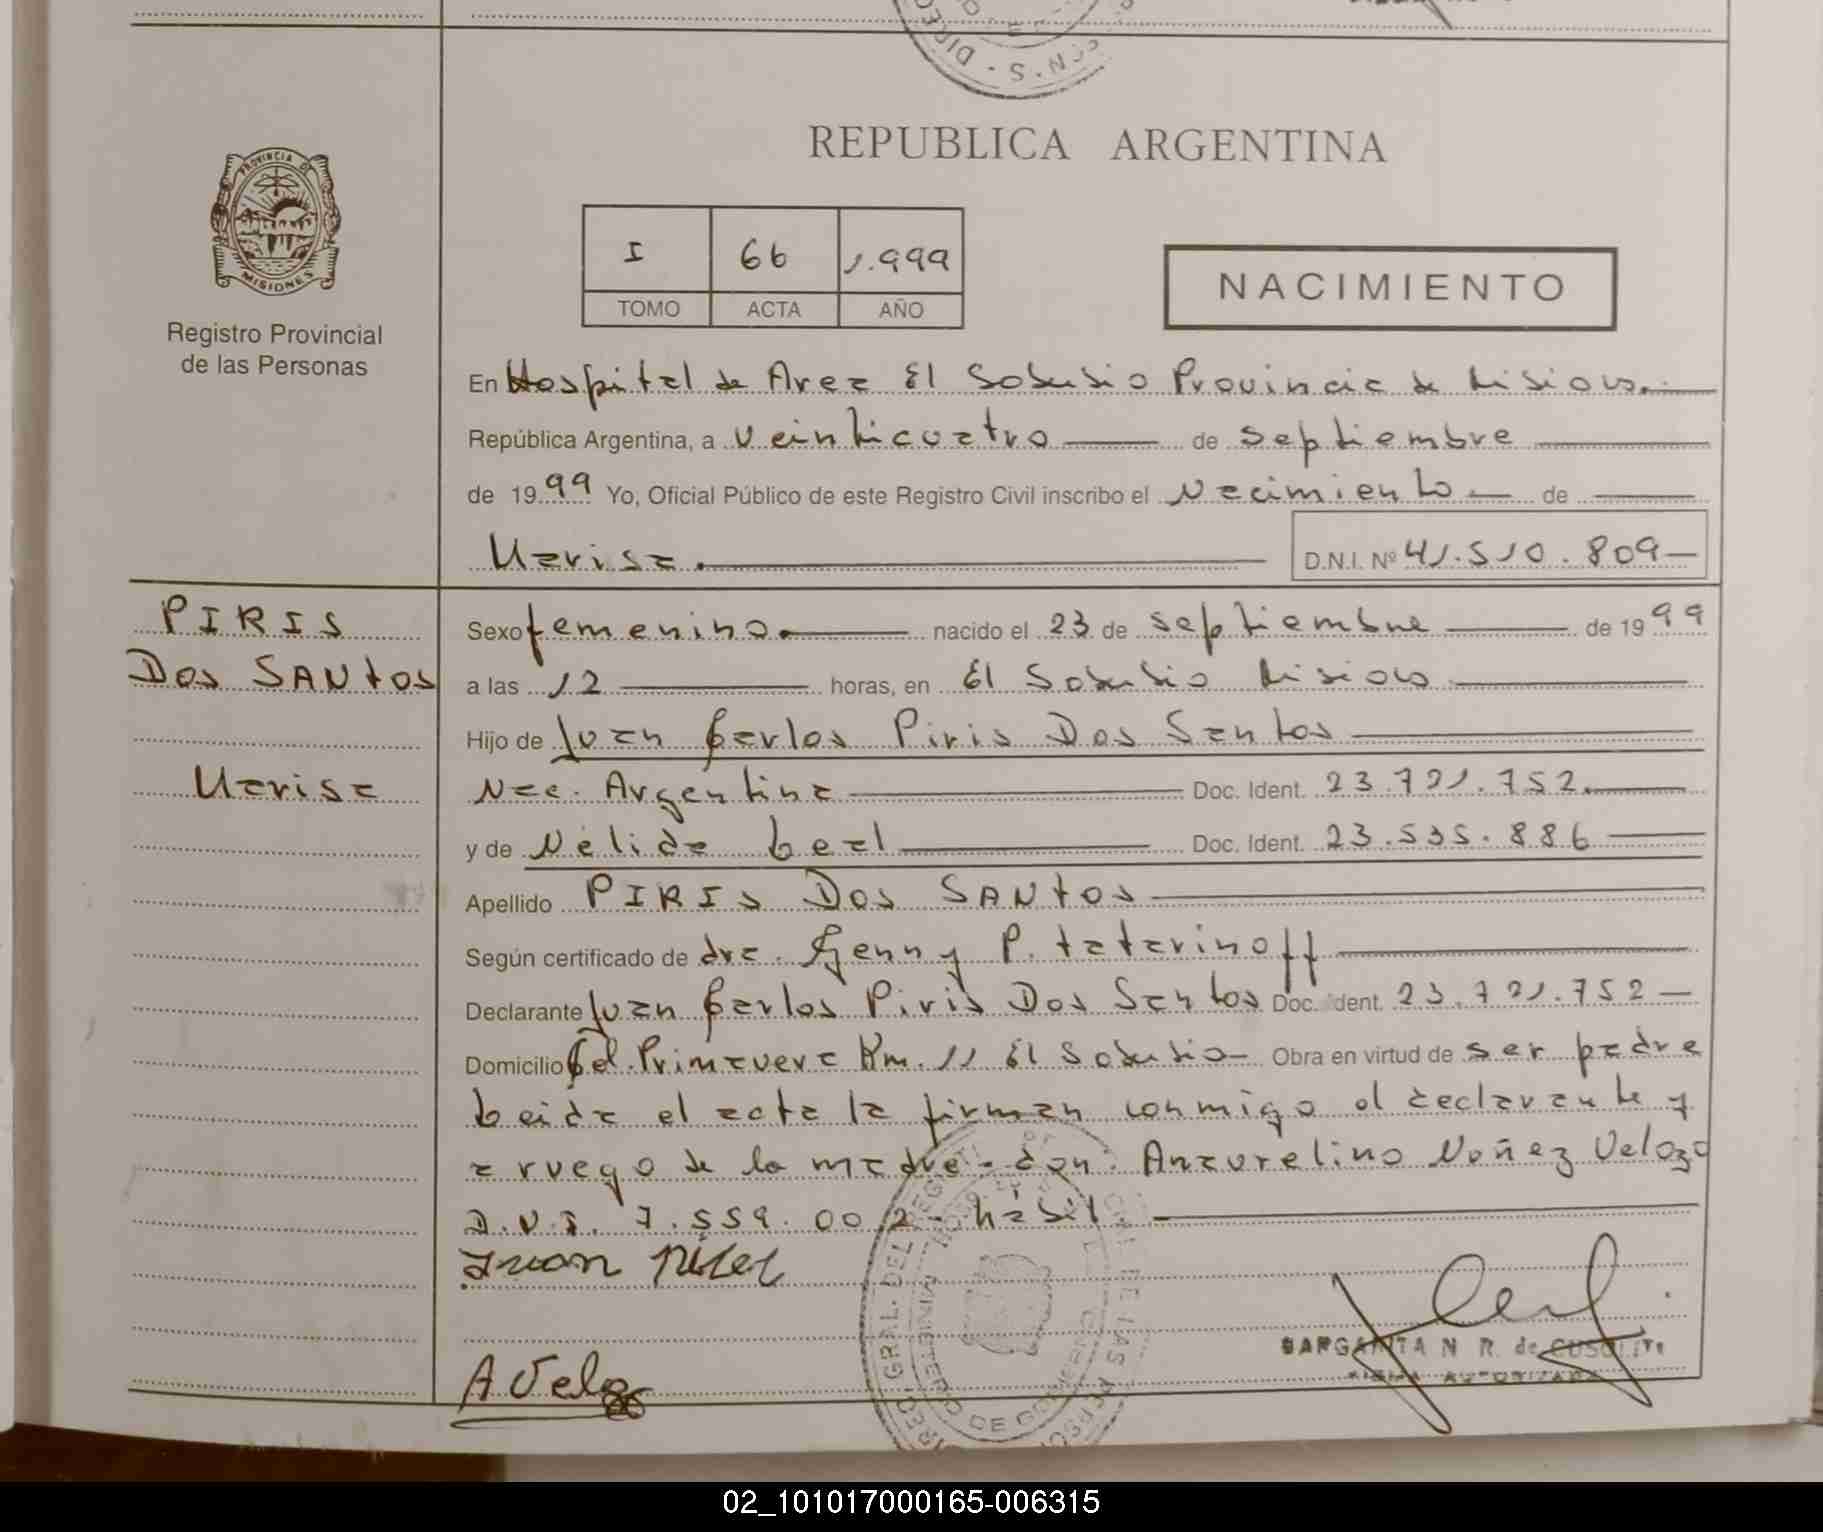 REPUBLICA ARGENTINA
PROVINCIA DE
MISIONES
Registro Provincial
de las Personas
I 66 1.999
TOMO ACTA AÑO
NACIMIENTO
En Hospital de Area El Soberbio Provincia de Misiones.
República Argentina, a veinticuatro de septiembre
de 1999 Yo, Oficial Público de este Registro Civil inscribo el Nacimiento de
Marisa. D.N.I. Nº 41.510.809
PIRIS
DOS SANTOS
Marisa
Sexo femenino. nacido el 23 de septiembre de 1999
a las 12 horas, en El Soberbio Misiones
Hijo de Juan Carlos Piris Dos Santos
Nac. Argentina Doc. Ident. 23.721.752.
y de Nélida Leal Doc. Ident. 23.535.886
Apellido PIRIS DOS SANTOS
Según certificado de dra. Genny P. tatarinoff
Declarante Juan Carlos Piris Dos Santos Doc. Ident. 23.721.752
Domicilio Col. Primavera Km. 11 El Soberbio Obra en virtud de ser padre
Leida el acta la firman conmigo el declarante y
a ruego de la madre - don. Anaurelino Nuñez Velozo
D.N.I. 7.559.002 - hábil.
Juan
A Veloz
MARGARITA N R. de
FIRMA AUTORIZADA
MINISTERIO DE GOBIERNO
02_101017000165-006315